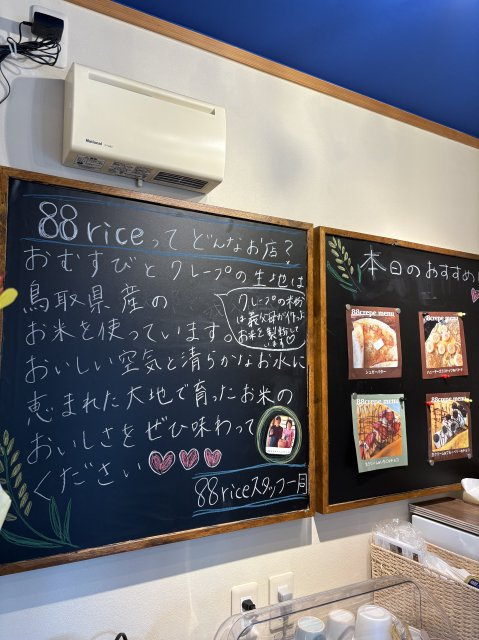 National
88riceってどんなお店?
おむすびとクレープの生地は
鳥取県産の
お米を使っています。
クレープの米粉
は義父母が作った
お米を製粉して
います♡
おいしい空気と清らかなお水に
恵まれた大地で育ったお米の
おいしさをぜひ味わって
ください♡♡♡
88riceスタッフ一同
本日のおすすめ
88crepe menu
シュガーバター
88crepe menu
88crepe menu
88crepe menu